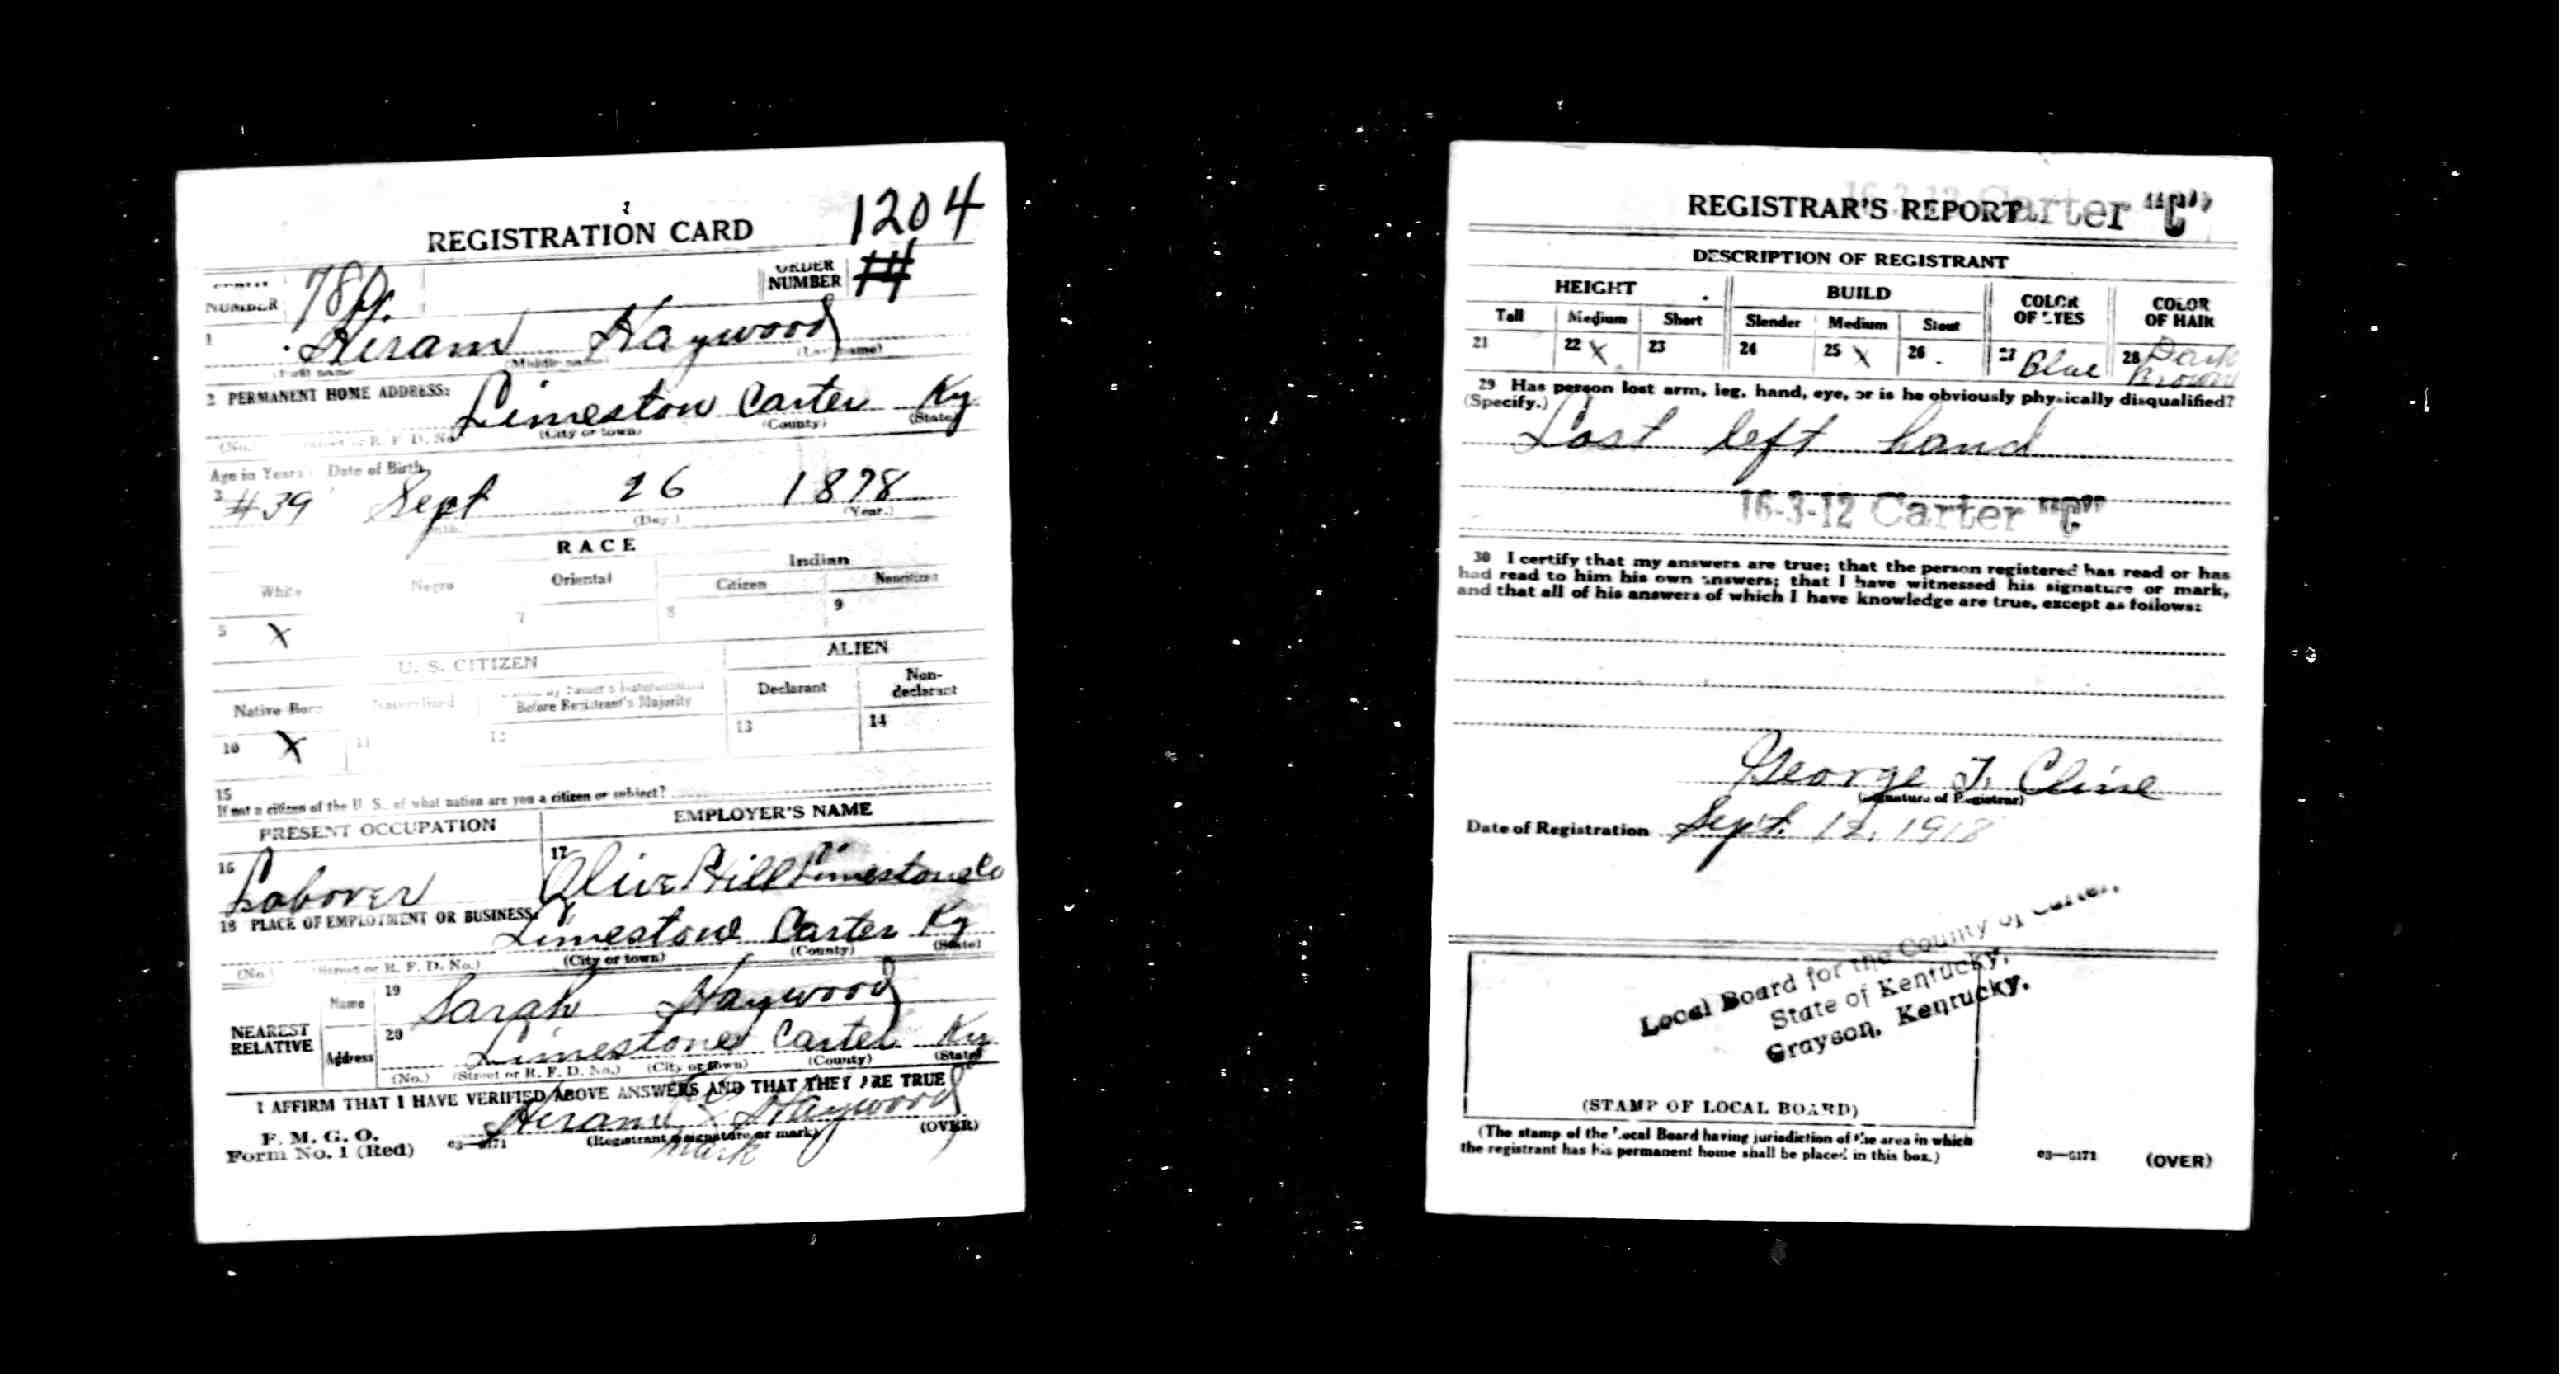 REGISTRATION CARD 1204
NUMBER 789. ORDER NUMBER #
1 Hiram Haywood
(First name) (Middle name) (Last name)
2 PERMANENT HOME ADDRESS:
Limeston Carter Ky
(No.) (Street or R. F. D. No.) (City or town) (County) (State)
Age in Years Date of Birth
3 #39 Sept 26 1878
(Day.) (Year.)
RACE
White Negro Oriental Indian
Citizen Noncitizen
5 X 7 8 9
U. S. CITIZEN ALIEN
Native Born Naturalized Before Registrant's Majority Declarant Non-declarant
10 X 11 12 13 14
15
If not a citizen of the U. S., of what nation are you a citizen or subject?
PRESENT OCCUPATION EMPLOYER'S NAME
16 Laborer 17 Olive Hill Limestone Co
18 PLACE OF EMPLOYMENT OR BUSINESS:
Limestone Carter Ky
(No.) (Street or R. F. D. No.) (City or town) (County) (State)
NEAREST RELATIVE
Name 19 Sarah Haywood
Address 20 Limestone Carter Ky
(No.) (Street or R. F. D. No.) (City or town) (County) (State)
I AFFIRM THAT I HAVE VERIFIED ABOVE ANSWERS AND THAT THEY ARE TRUE
Hiram X Haywood
F. M. G. O.
Form No. 1 (Red) 03—6171 (Registrant's signature or mark) (OVER)
mark
16-3-12 Carter "C"
REGISTRAR'S REPORT
DESCRIPTION OF REGISTRANT
HEIGHT BUILD COLOR OF EYES COLOR OF HAIR
Tall Medium Short Slender Medium Stout
21 22 X 23 24 25 X 26 27 Blue 28 Dark Brown
29 Has person lost arm, leg, hand, eye, or is he obviously physically disqualified?
(Specify.)
Lost left hand
16-3-12 Carter "C"
30 I certify that my answers are true; that the person registered has read or has
had read to him his own answers; that I have witnessed his signature or mark,
and that all of his answers of which I have knowledge are true, except as follows:
George T. Cline
(Signature of Registrar)
Date of Registration Sept. 12, 1918
Local Board for the County of Carter,
State of Kentucky,
Grayson, Kentucky.
(STAMP OF LOCAL BOARD)
(The stamp of the Local Board having jurisdiction of the area in which
the registrant has his permanent home shall be placed in this box.)
03—6171 (OVER)